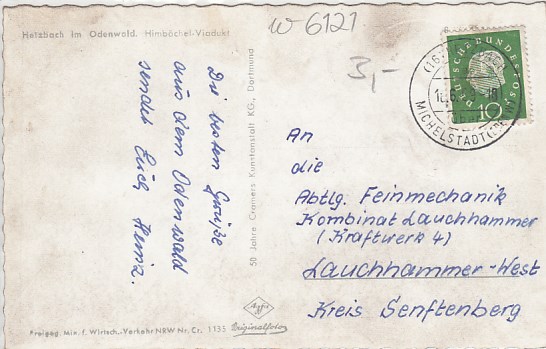 Hetzbach im Odenwald. Himbächel-Viadukt
w 6121
3,-
Die besten Grüße
aus dem Odenwald
sendet Euch Heinz.
50 Jahre Cramers Kunstanstalt KG., Dortmund
DEUSCHE BUNDESPOST
10
(16)
MICHELSTADT (ODENW)
An
die
Abtlg. Feinmechanik
Kombinat Lauchhammer
(Kraftwerk 4)
Lauchhammer-West
Kreis Senftenberg
Freigeg. Min. f. Wirtsch.-Verkehr NRW Nr. Cr. 1135
Agfa
Originalfoto